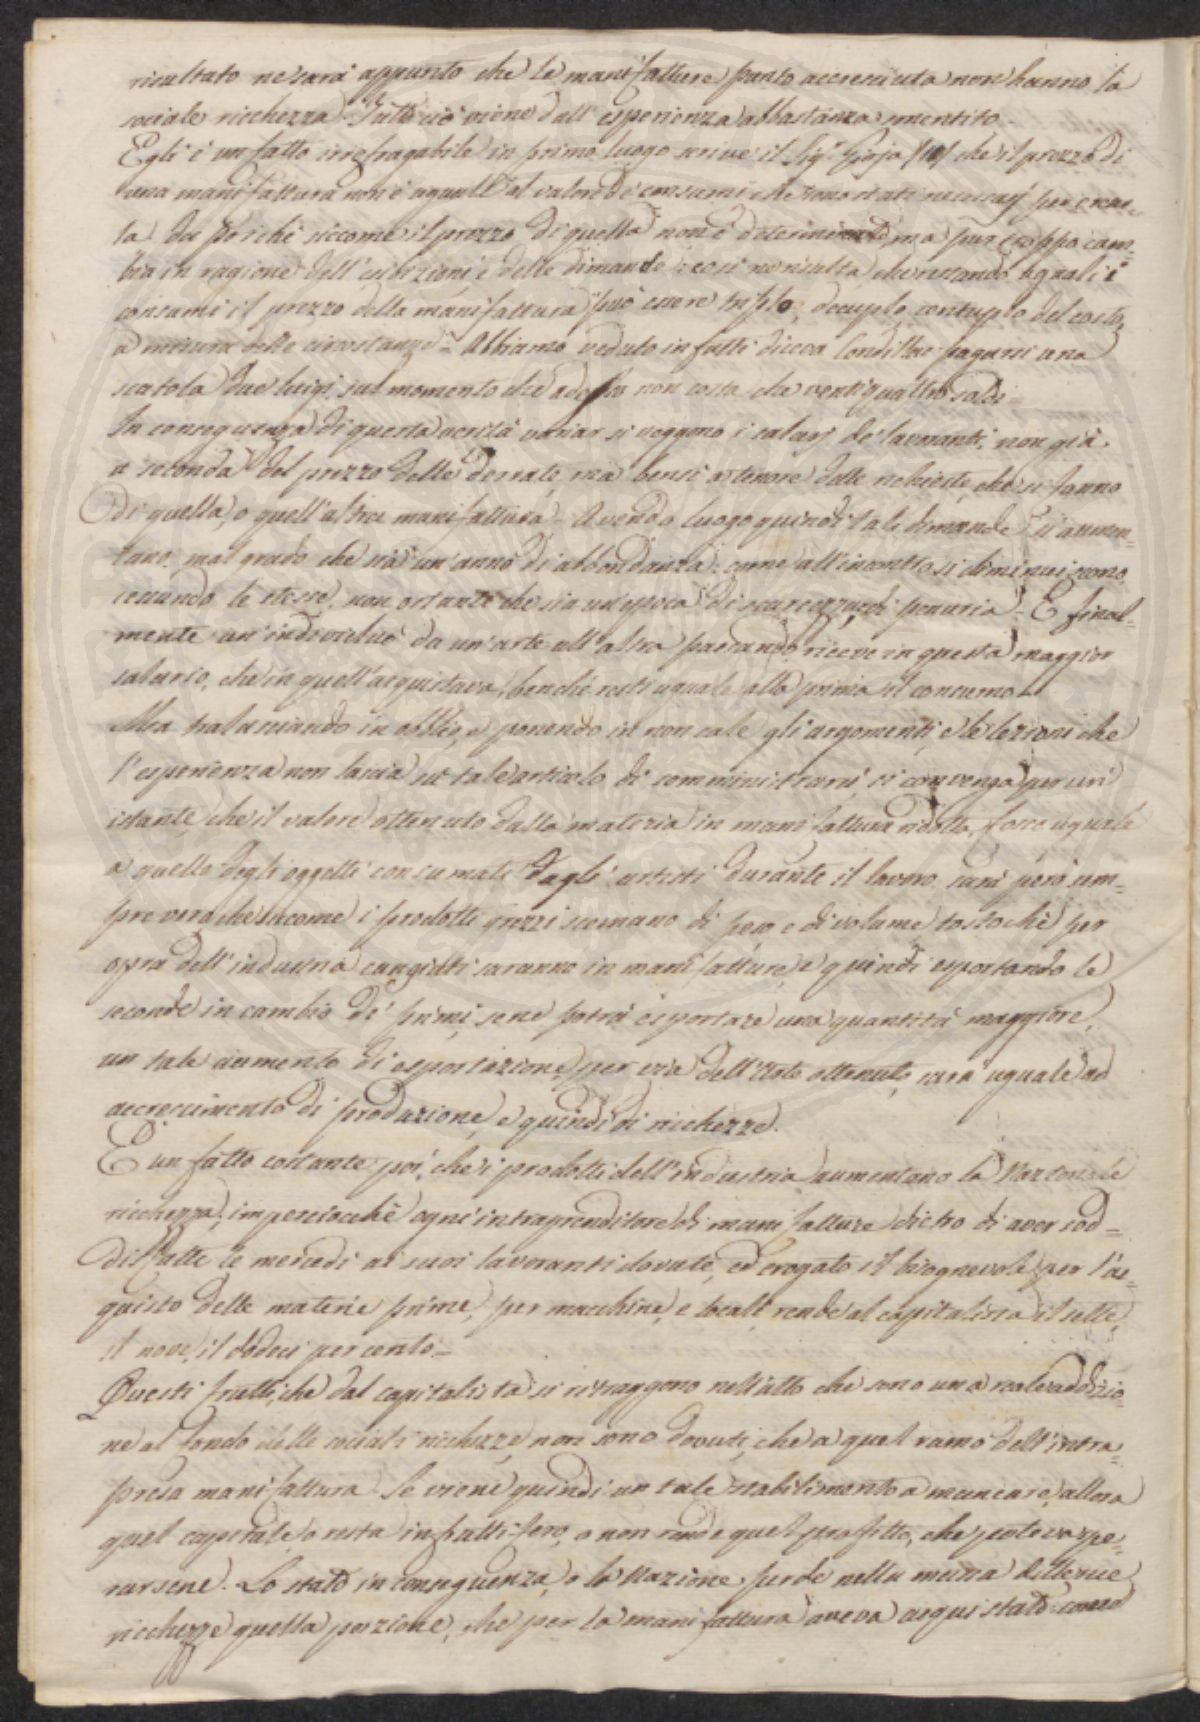 risultato ne sarà appunto che le manifatture punto accresciuta non hanno la
sociale ricchezza. Tutto ciò viene dall'esperienza abbastanza smentito.
Egli è un fatto irrefragabile in primo luogo scrive il Sig.r Gioja che il prezzo di
una manifattura non è aguale al valore de' consumi che sono stati necessarj per crear=
la. Da poichè siccome il prezzo di quella non è determinato ma pur troppo cam=
bia in ragione dell'esibizioni e delle dimande così ne risulta che restando uguali i
consumi il prezzo della manifattura può essere triplo, decuplo, centuplo del costo,
a misura delle circostanze = Abbiamo veduto in fatti diceva Condillac pagarsi una
scatola due luigi sul momento che adesso non costa che ventiquattro soldi =
In conseguenza di questa verità variar si veggono i salarj de' lavoranti, non già
a seconda del prezzo delle derrate, ma bensì a tenore delle richieste, che si fanno
di quella, o quell'altra manifattura = Avendo luogo quindi tale dimande si aumen=
tano, mal grado che sia un'anno di abbondanza; come all'incontro si diminuiscono,
cessando le stesse, non ostante che sia un'epoca di scarsezza, di penuria = E final=
mente un'individuo da un'arte all'altra passando, riceve in questa maggior
salario, che in quell'acquistava, benchè resti uguale alla prima il consumo =
Ma tralasciando in obblio, e ponendo in non cale gli argomenti, e le lezioni che
l'esperienza non lascia su tale articolo di somministrarci, si convenga per un'
istante, che il valore ottenuto dalla materia in manifattura ridotta, fosse uguale
a quello degli oggetti consumati dagli artisti durante il lavoro, sarà però sem=
pre vero che siccome i prodotti grezzi scemano di peso e di volume tostochè per
opra dell'industria cangiati saranno in manifatture, e quindi esportando le
seconde in cambio de' primi, se ne potrà esportare una quantità maggiore,
un tale aumento di esportazione, per via dell'arte ottenuto, sarà uguale ad
accrescimento di produzione, e quindi di ricchezze.
È un fatto costante poi, che i prodotti dell'industria aumentano la Nazionale
ricchezza, imperciocchè ogni intraprenditore di manifatture dietro di aver sod=
disfatte le mercedi ai suoi lavoranti dovute, ed erogato il bisognevole per l'ac=
quisto delle materie prime, per macchine, e locali, rende al capitalista il sette,
il nove, il dodeci per cento =
Questi frutti, che dal capitalista si ritraggono nell'atto che sono una reale addizio=
ne al fondo delle sociali ricchezze non sono dovuti, che a quel ramo dell'intra=
presa manifattura. Se viene quindi un tale stabilimento a mancare, allora
quel capitale, o resta infruttifero, o non rende quel profitto, che poteva spe=
rarsene. Lo stato in conseguenza, o la Nazione perde nella massa delle sue
ricchezze quella porzione, che per la manifattura aveva acquistato come